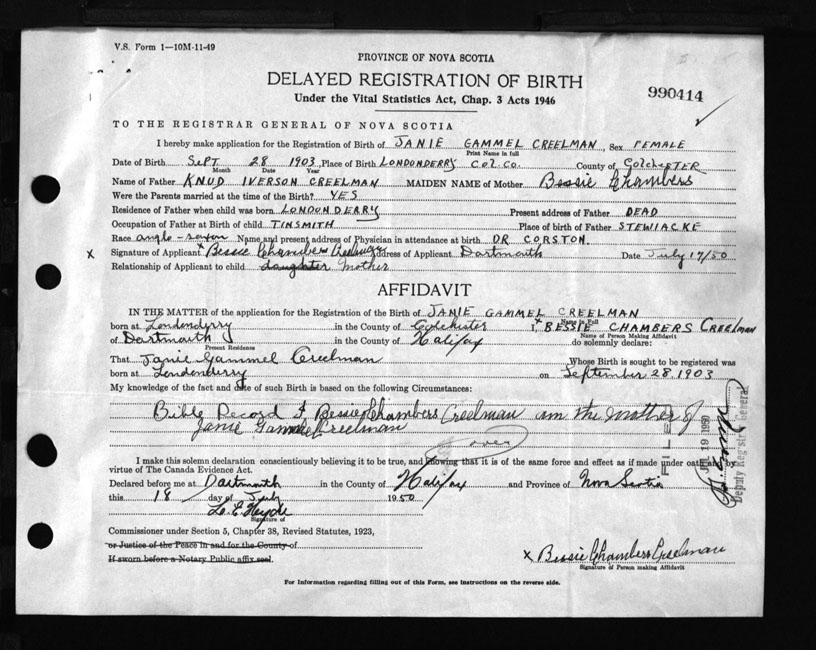 V.S. Form 1—10M-11-49
PROVINCE OF NOVA SCOTIA
DELAYED REGISTRATION OF BIRTH
990414
Under the Vital Statistics Act, Chap. 3 Acts 1946
TO THE REGISTRAR GENERAL OF NOVA SCOTIA
I hereby make application for the Registration of Birth of JANIE GAMMEL CREELMAN, Sex FEMALE
Print Name in full
Date of Birth SEPT 28 1903, Place of Birth LONDONDERRY COL. CO. County of COLCHESTER
Month Date Year
Name of Father KNUD IVERSON CREELMAN MAIDEN NAME of Mother Bessie Chambers
Were the Parents married at the time of the Birth? YES
Residence of Father when child was born LONDONDERRY Present address of Father DEAD
Occupation of Father at Birth of child TINSMITH Place of birth of Father STEWIACKE
Race anglo-saxon Name and present address of Physician in attendance at birth DR CORSTON.
x Signature of Applicant Bessie Chambers Creelman Address of Applicant Dartmouth Date July 17/50
Relationship of Applicant to child daughter Mother
AFFIDAVIT
IN THE MATTER of the application for the Registration of Birth of JANIE GAMMEL CREELMAN
Name in Full
born at Londonderry in the County of Colchester I, x BESSIE CHAMBERS CREELMAN
Name of Person Making Affidavit
of Dartmouth in the County of Halifax do solemnly declare:
Present Residence
That Janie Gammel Creelman Whose Birth is sought to be registered was
born at Londonderry on September 28, 1903
My knowledge of the fact and date of such Birth is based on the following Circumstances:
Bible Record I Bessie Chambers Creelman am the mother of
Janie Gammel Creelman
over
I make this solemn declaration conscientiously believing it to be true, and knowing that it is of the same force and effect as if made under oath and by
virtue of The Canada Evidence Act.
Declared before me at Dartmouth in the County of Halifax and Province of Nova Scotia
this 18 day of July 1950
Signature of
Commissioner under Section 5, Chapter 38, Revised Statutes, 1923,
or Justice of the Peace in and for the County of
If sworn before a Notary Public affix seal.
x Bessie Chambers Creelman
Signature of Person making Affidavit
For Information regarding filling out of this Form, see Instructions on the reverse side.
FILED
JUL 19 1950
Deputy Registrar General